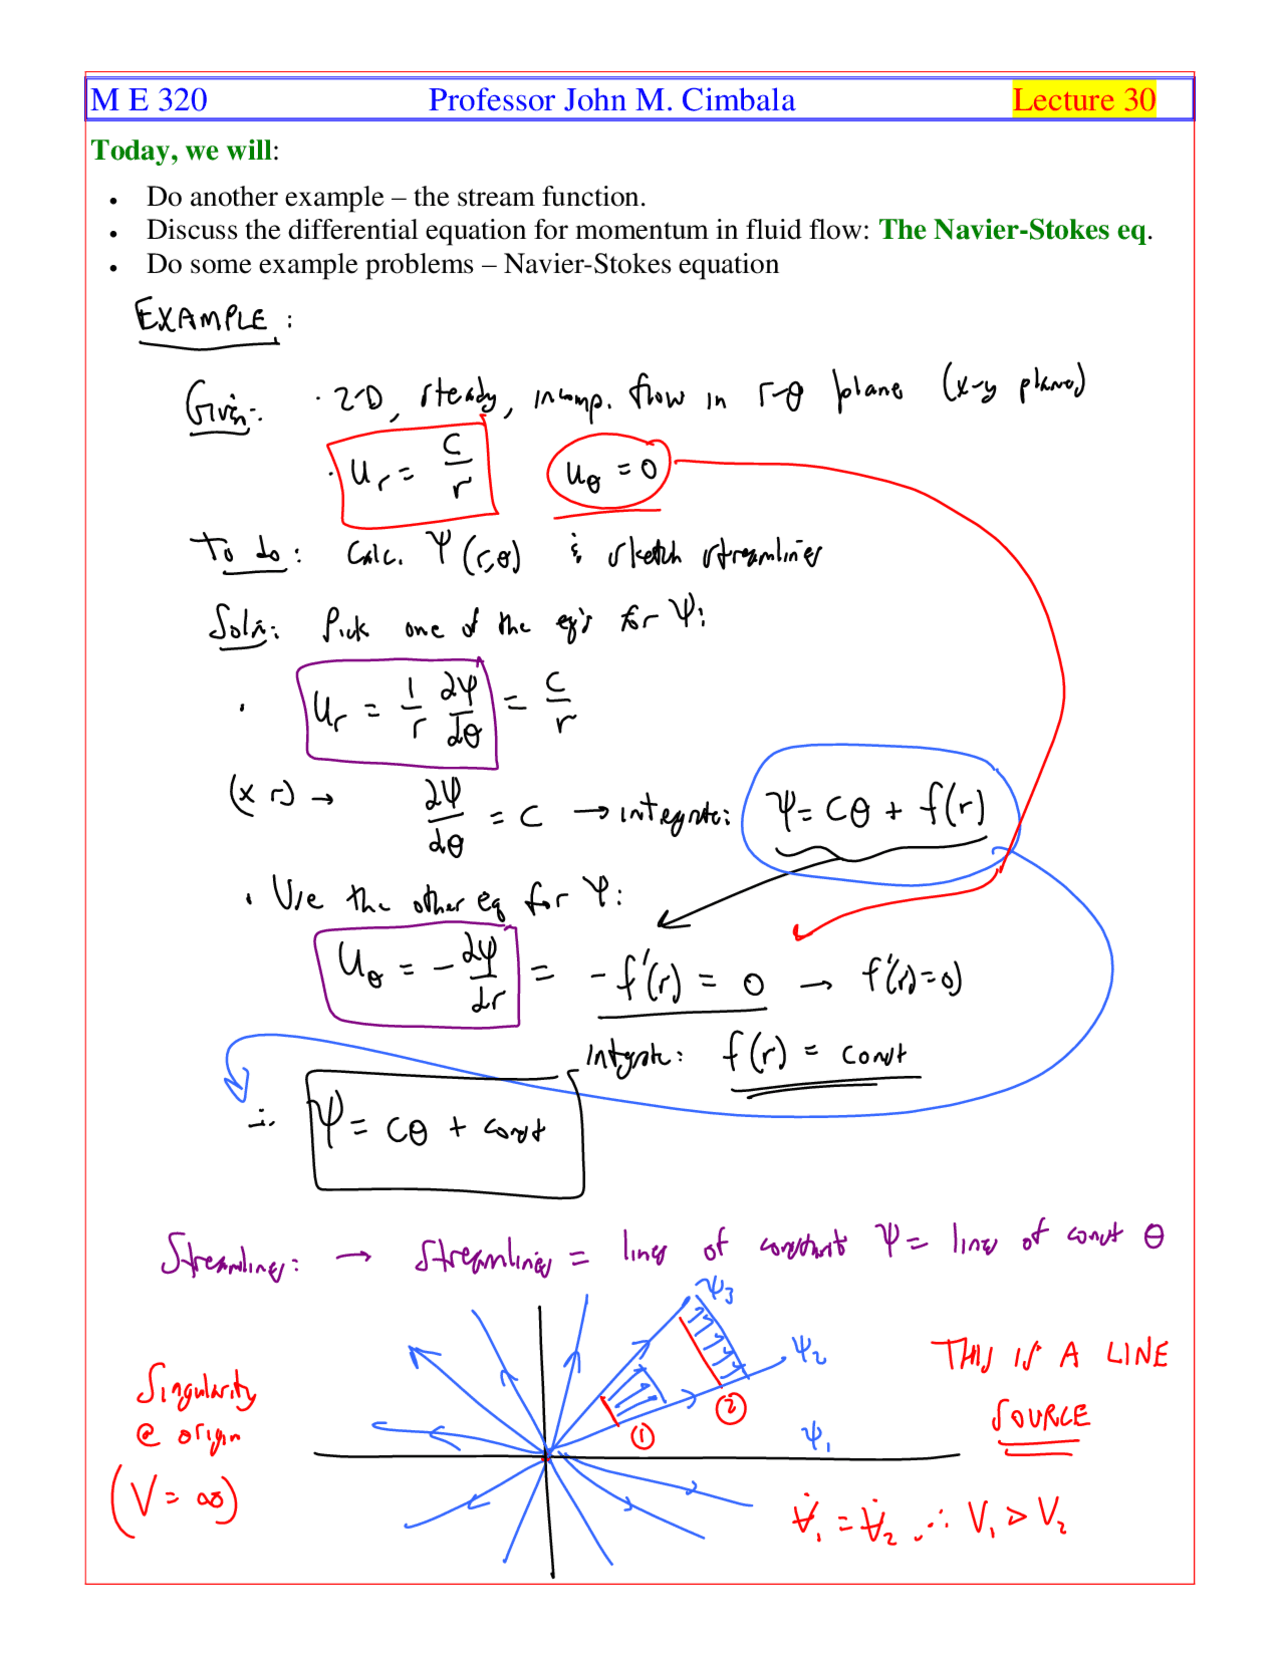 M E 320 Professor John M. Cimbala Lecture 30
Today, we will:
• Do another example – the stream function.
• Discuss the differential equation for momentum in fluid flow: The Navier-Stokes eq.
• Do some example problems – Navier-Stokes equation
EXAMPLE:
Given: · 2-D, steady, incomp. flow in r-θ plane (x-y plane)
· u_r = c/r u_θ = 0
To do: Calc. ψ(r,θ) & sketch streamlines
Soln: Pick one of the eq's for ψ:
· u_r = 1/r ∂ψ/∂θ = c/r
(× r) → ∂ψ/∂θ = c → integrate: ψ = cθ + f(r)
· Use the other eq for ψ:
u_θ = -∂ψ/∂r = -f'(r) = 0 → f'(r)=0
Integrate: f(r) = const
∴ ψ = cθ + const
Streamlines: → Streamlines = lines of constant ψ = lines of const θ
ψ3
ψ2
THIS IS A LINE
SOURCE
Singularity
@ origin
(V = ∞)
①
②
ψ1
V̶̇1 = V̶̇2 ∴ V1 > V2